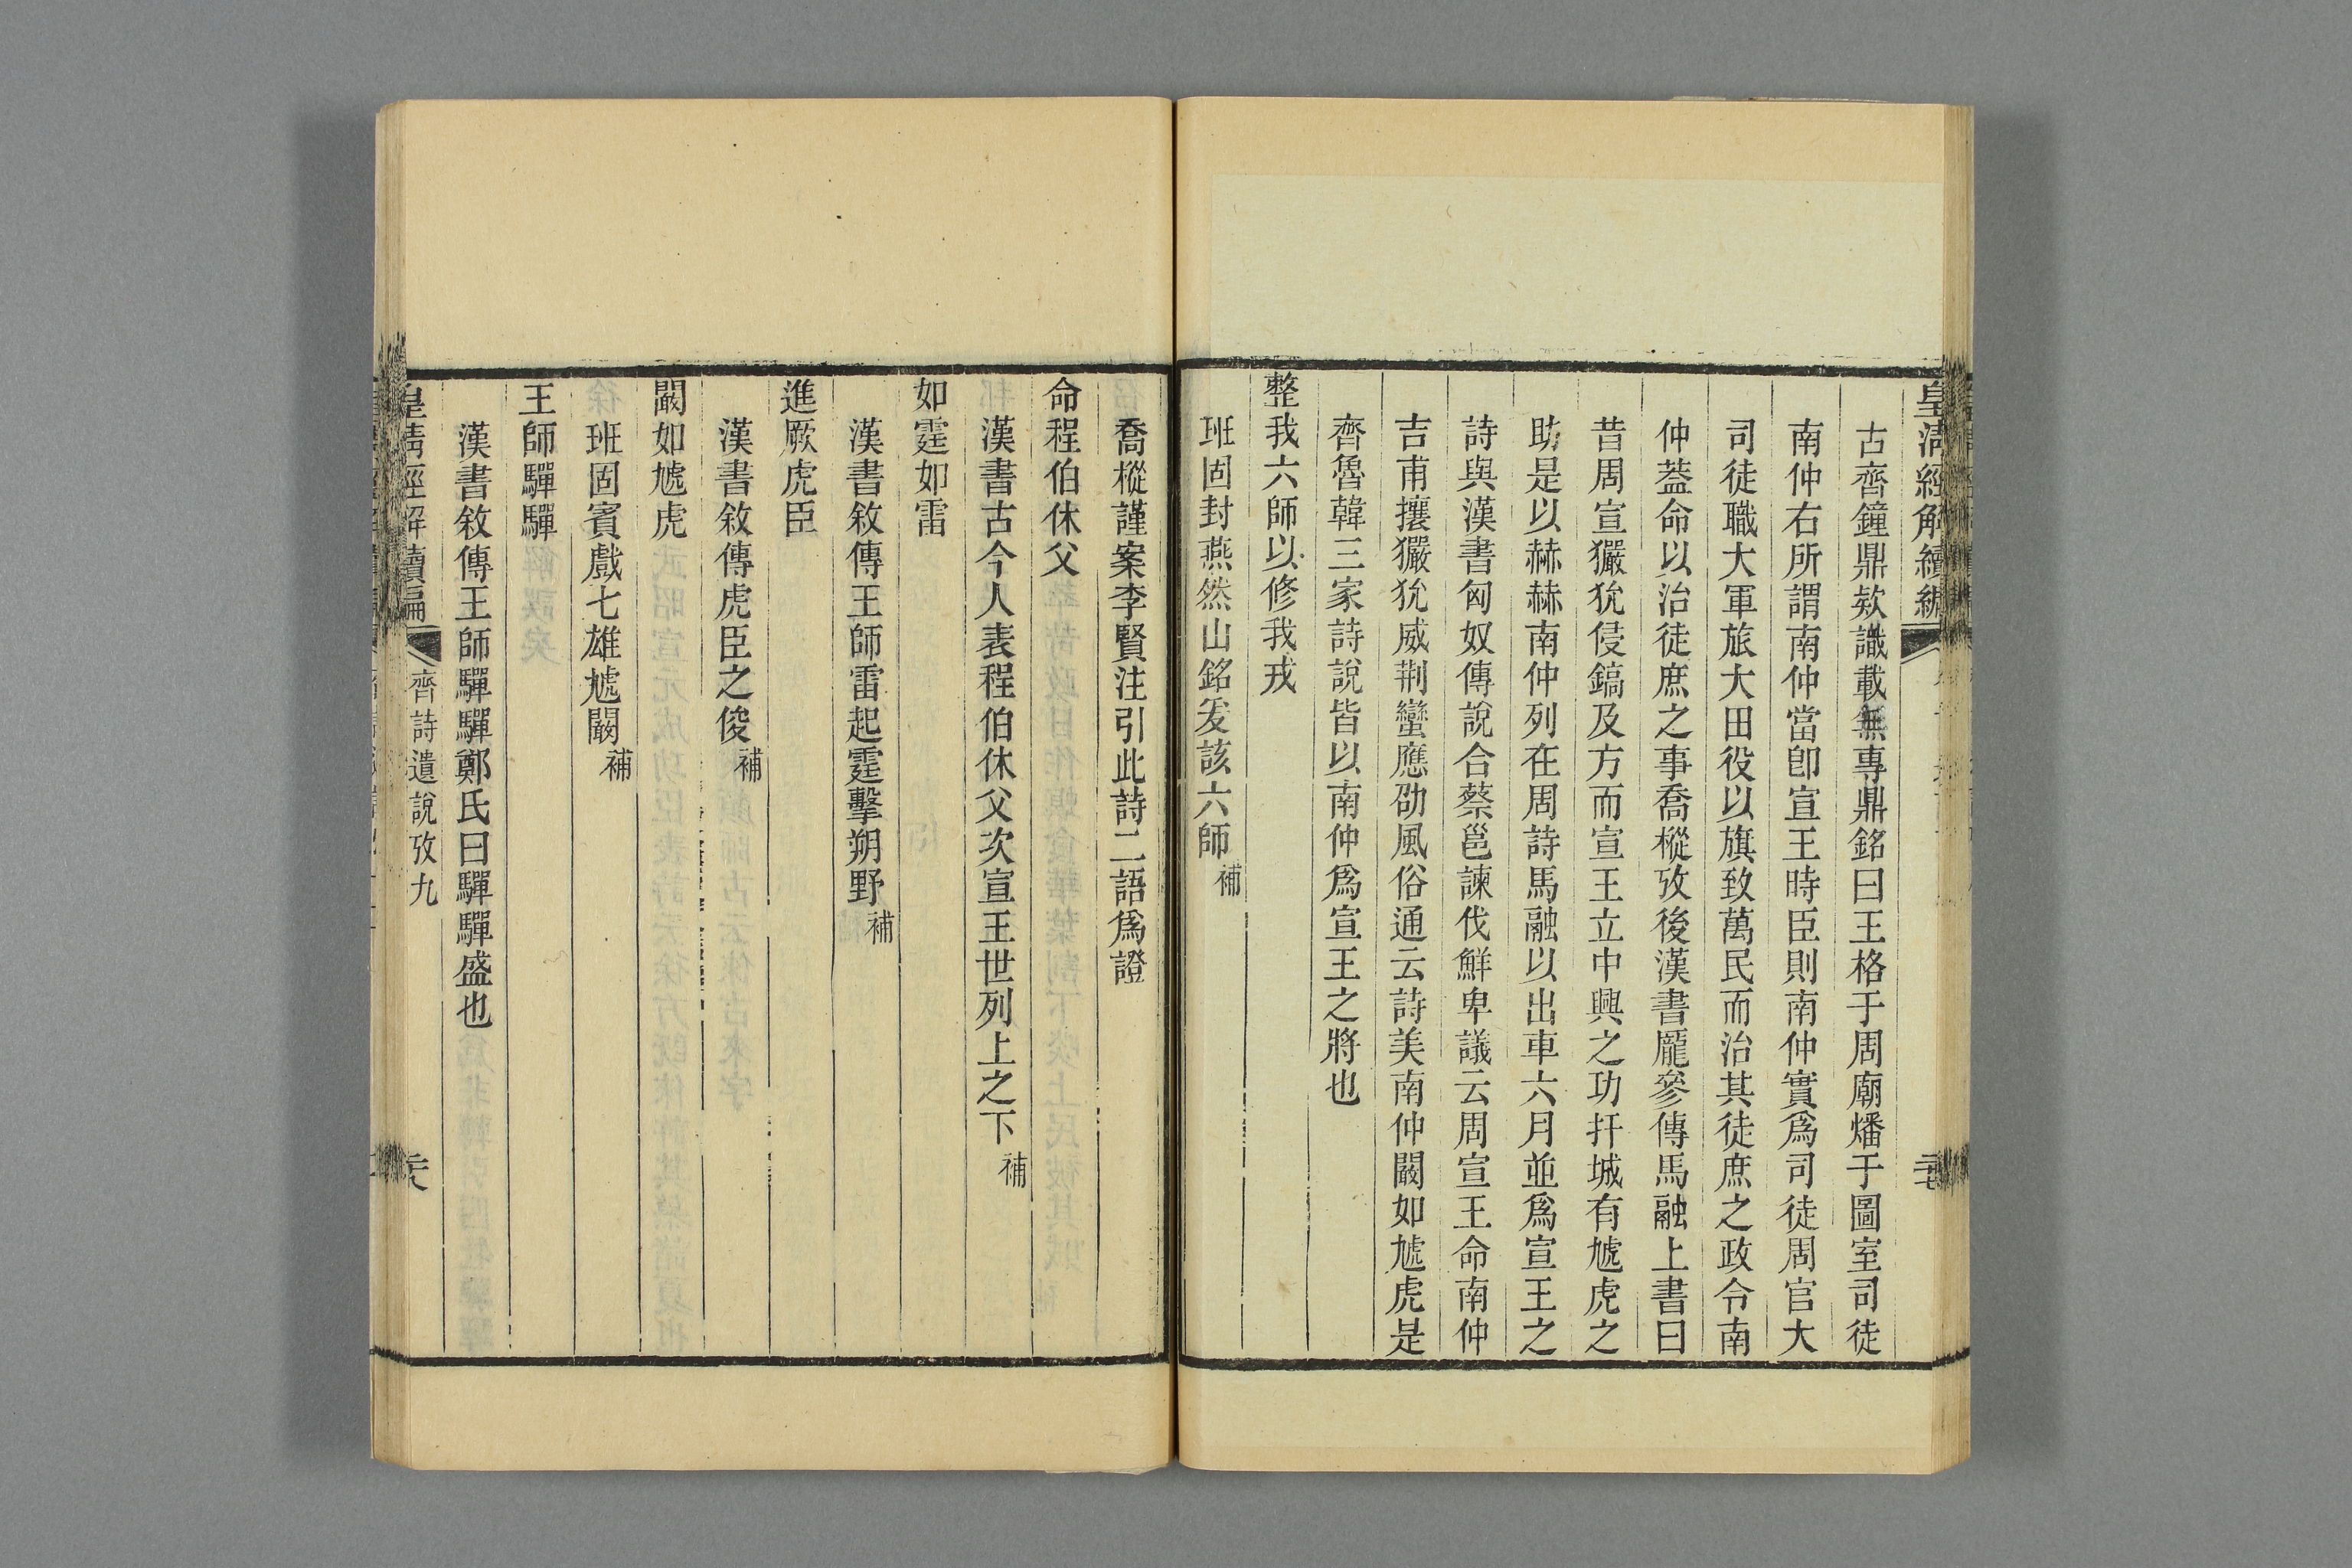 皇清經解續編
古齊鐘鼎欵識載無專鼎銘曰王格于周廟燔于圖室司徒
南仲右所謂南仲當卽宣王時臣則南仲實爲司徒周官大
司徒職大軍旅大田役以旗致萬民而治其徒庶之政令南
仲葢命以治徒庶之事喬樅攷後漢書龐參傳馬融上書曰
昔周宣玁狁侵鎬及方而宣王立中興之功扞城有虓虎之
助是以赫赫南仲列在周詩馬融以出車六月並爲宣王之
詩與漢書匈奴傳說合蔡邕諫伐鮮卑議云周宣王命南仲
吉甫攘玁狁威荆蠻應劭風俗通云詩美南仲闞如虓虎是
齊魯韓三家詩說皆以南仲爲宣王之將也
整我六師以修我戎
班固封燕然山銘爰該六師補
喬樅謹案李賢注引此詩二語爲證
命程伯休父
漢書古今人表程伯休父次宣王世列上之下補
如霆如雷
漢書敘傳王師雷起霆擊朔野補
進厥虎臣
漢書敘傳虎臣之俊補
闞如虓虎
班固賓戲七雄虓闞補
王師驒驒
漢書敘傳王師驒驒鄭氏曰驒驒盛也
皇清經解續編
齊詩遺說攷九